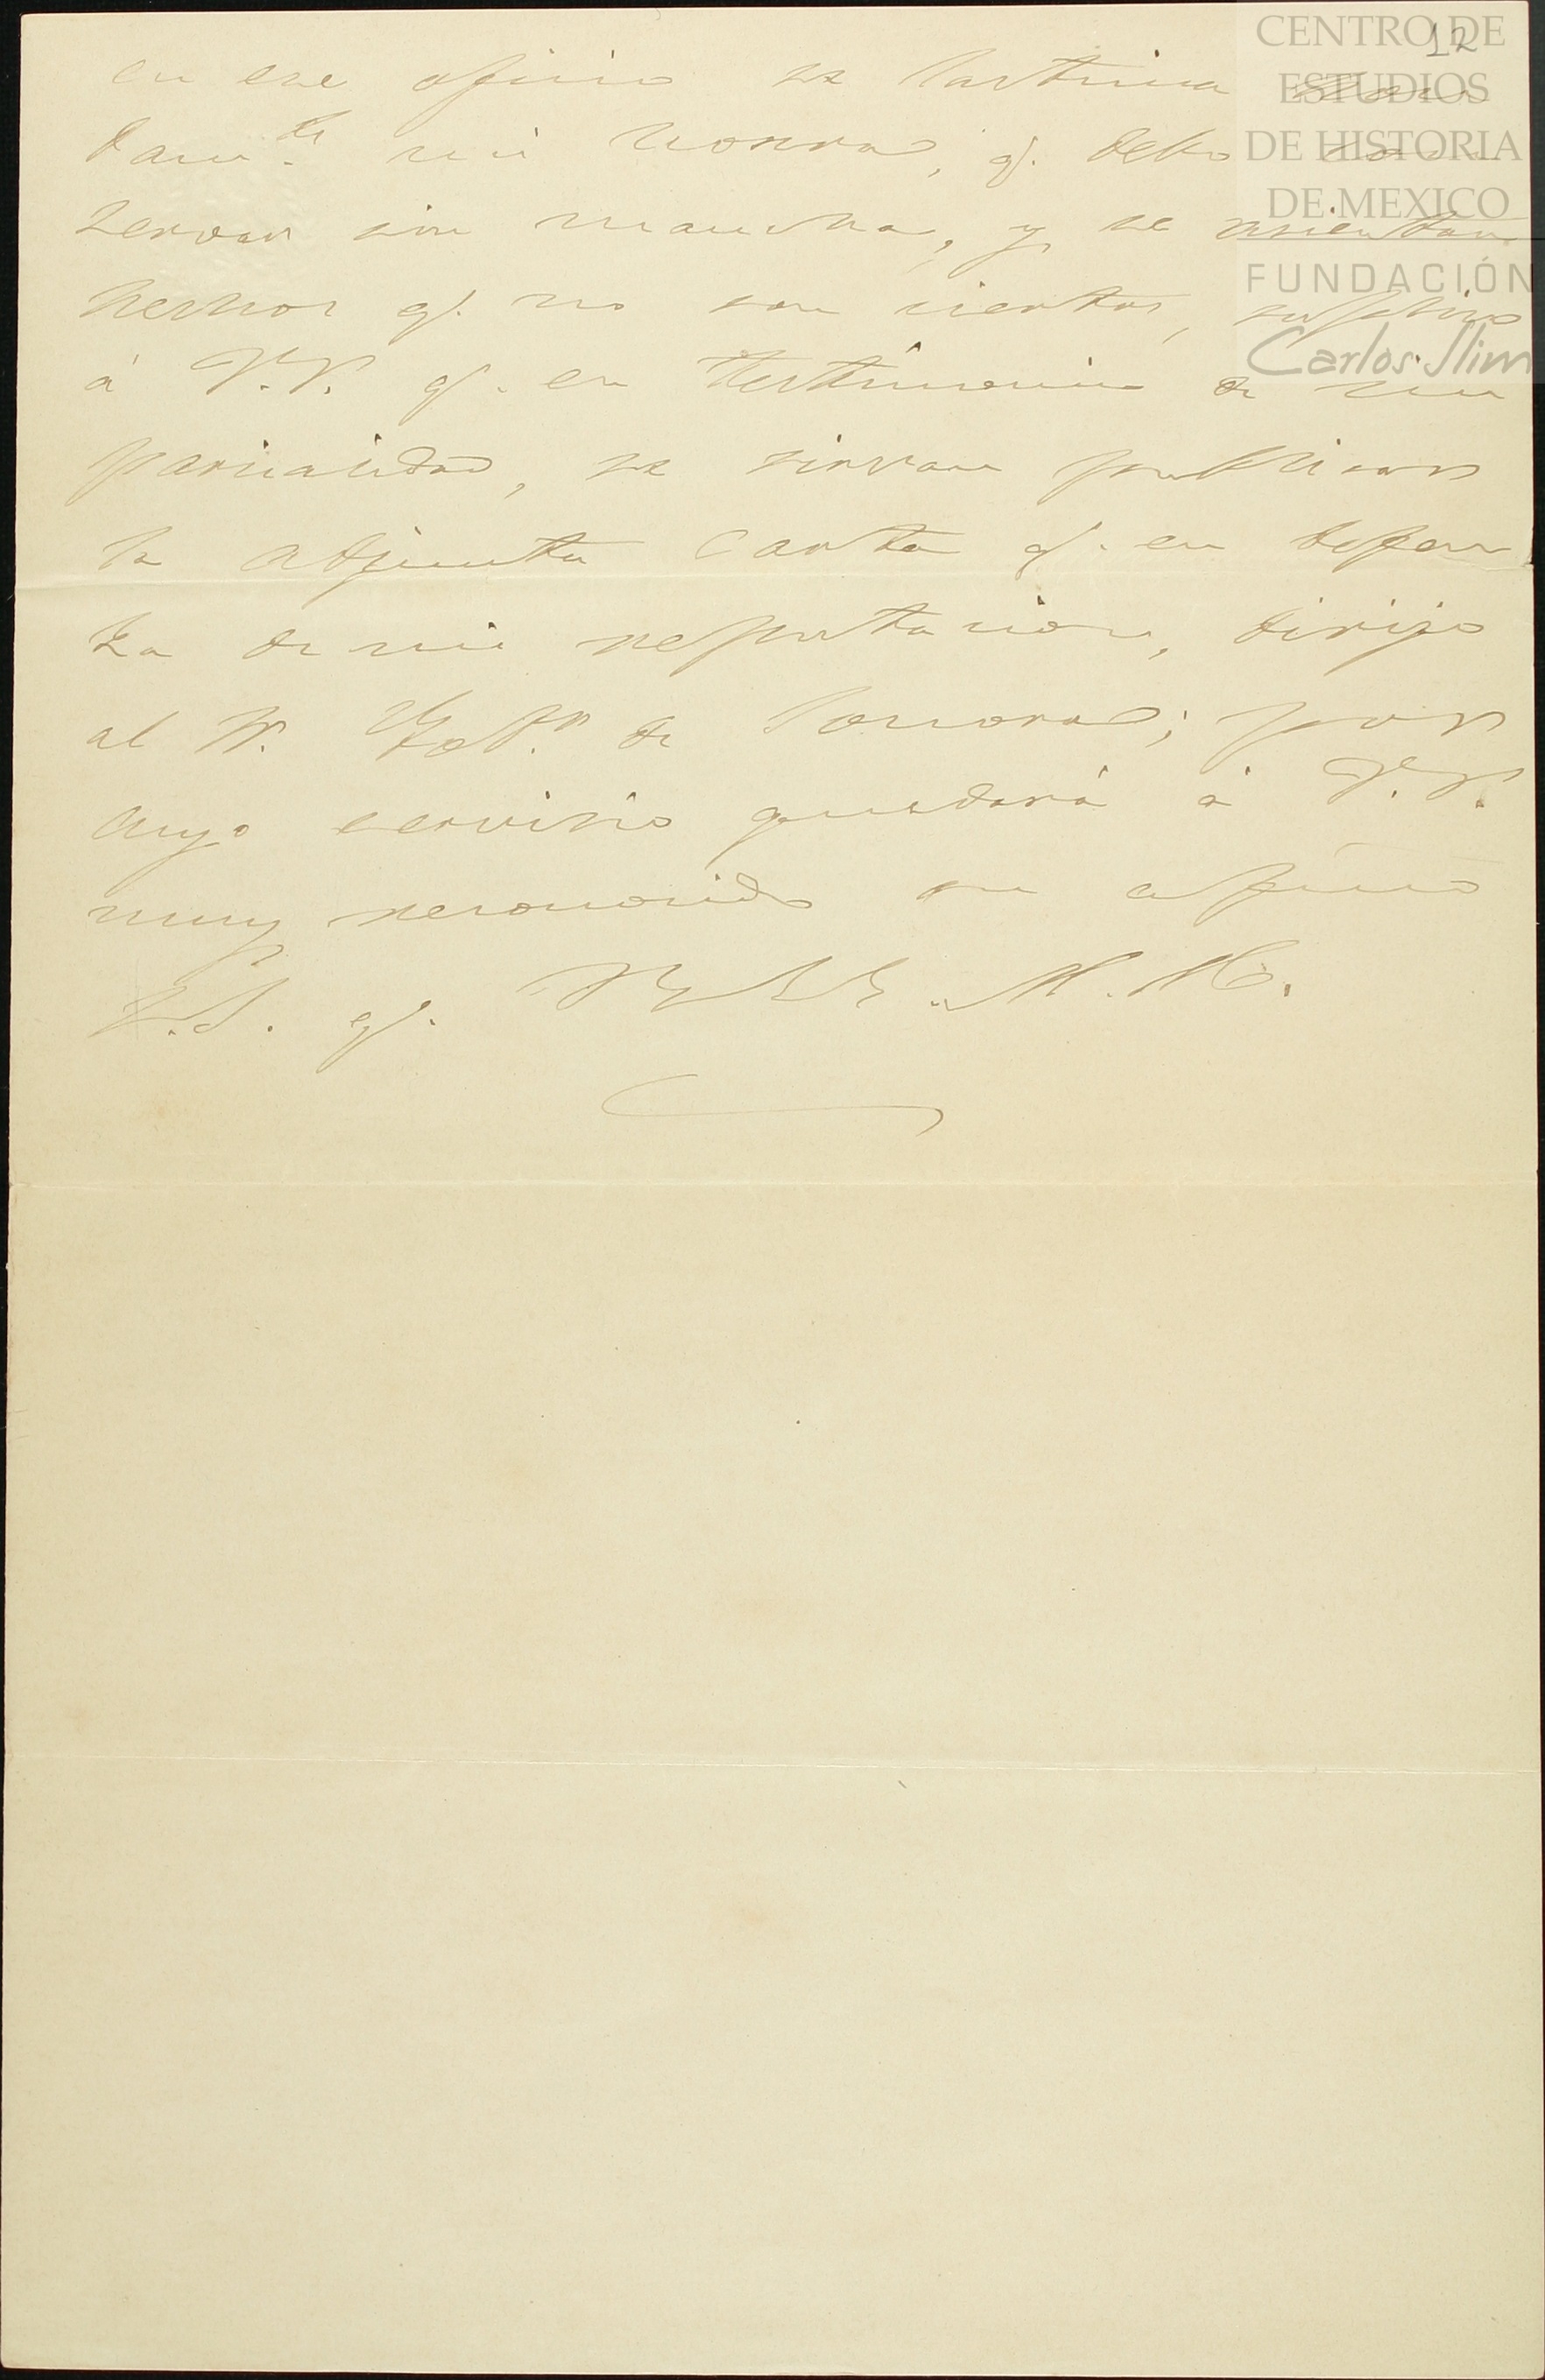 12
CENTRO DE
ESTUDIOS
DE HISTORIA
DE MEXICO
FUNDACIÓN
Carlos Slim
en ese oficio se lastima
dam.te mi honra, q. debo con
servar sin mancha, y se asientan
hechos q. no son ciertos, suplico
á V.V. q. en testimonio de su
parcialidad, se sirvan publicar
la adjunta carta q. en defen
sa de mi reputacion, dirijo
al S. Gob.r de Sonora; por
cuyo servicio quedará á V.V.
muy reconocido su afmo
S.S. q. B.SS.M.M.